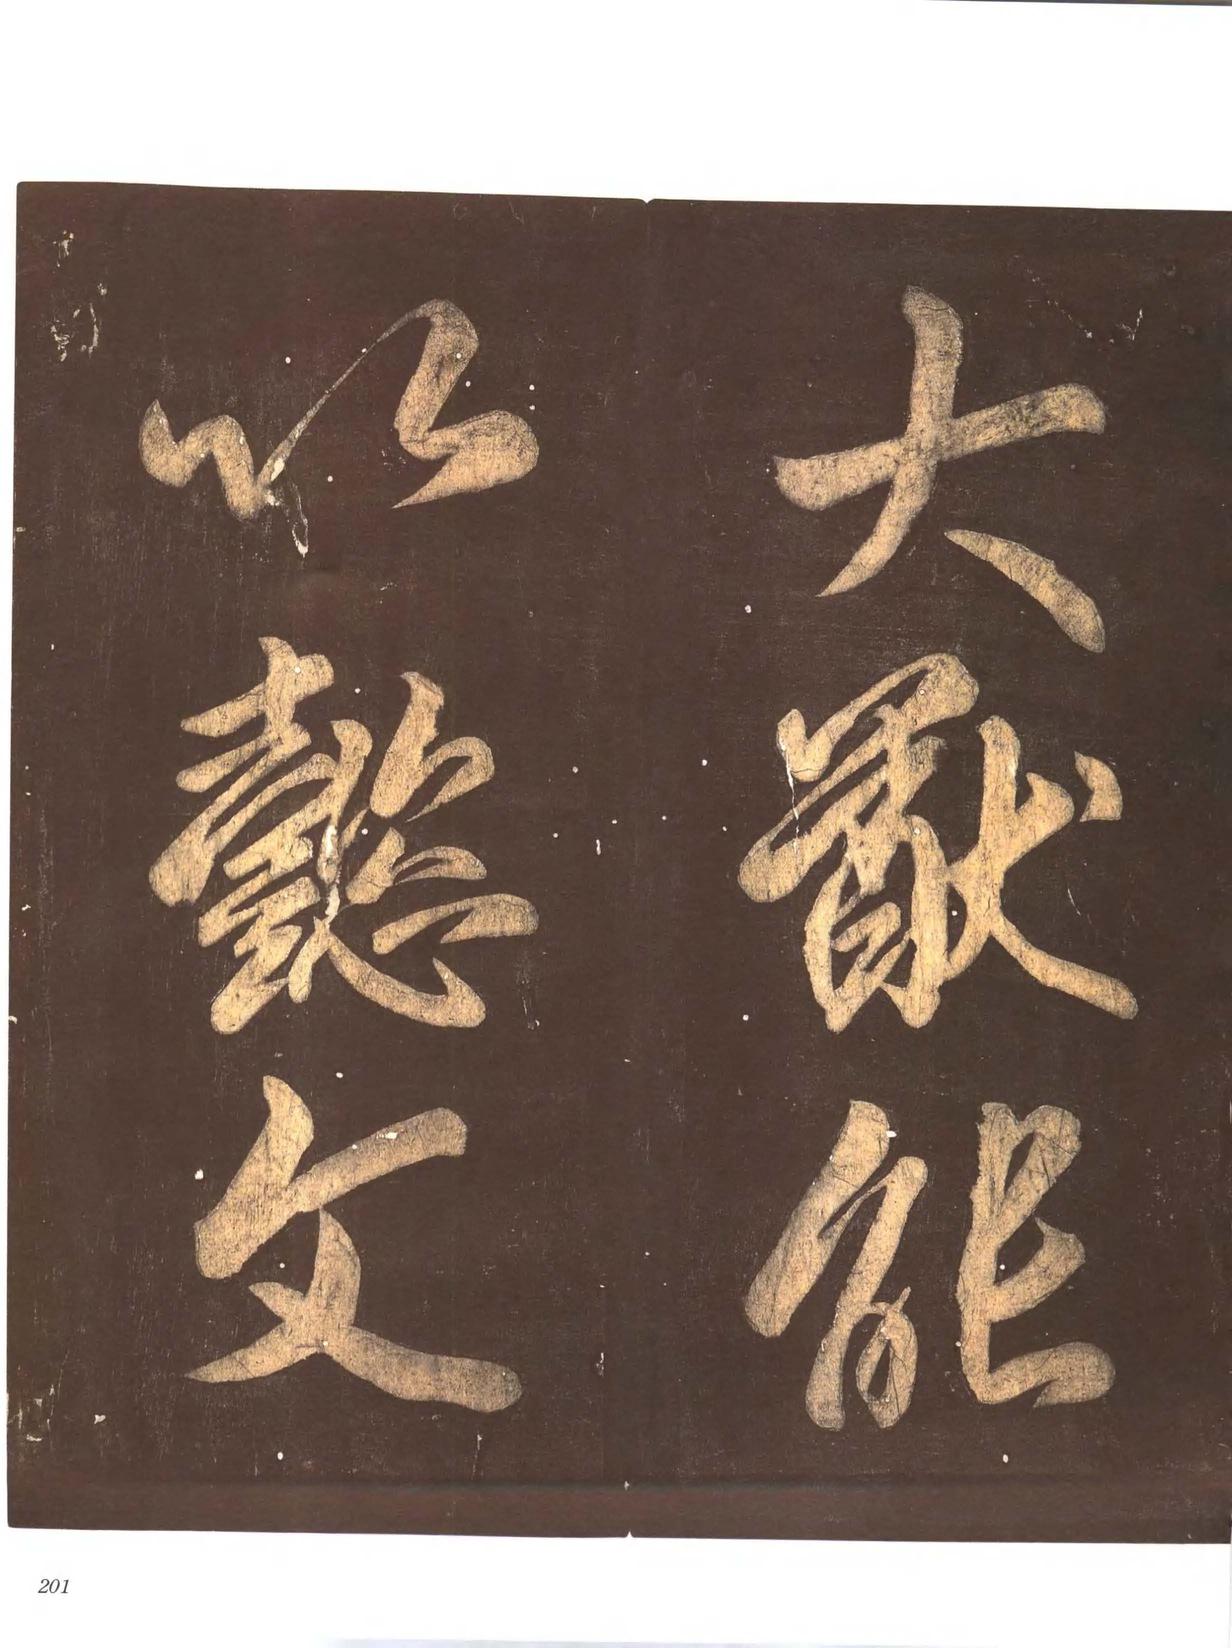 大獻能
以懿文
201